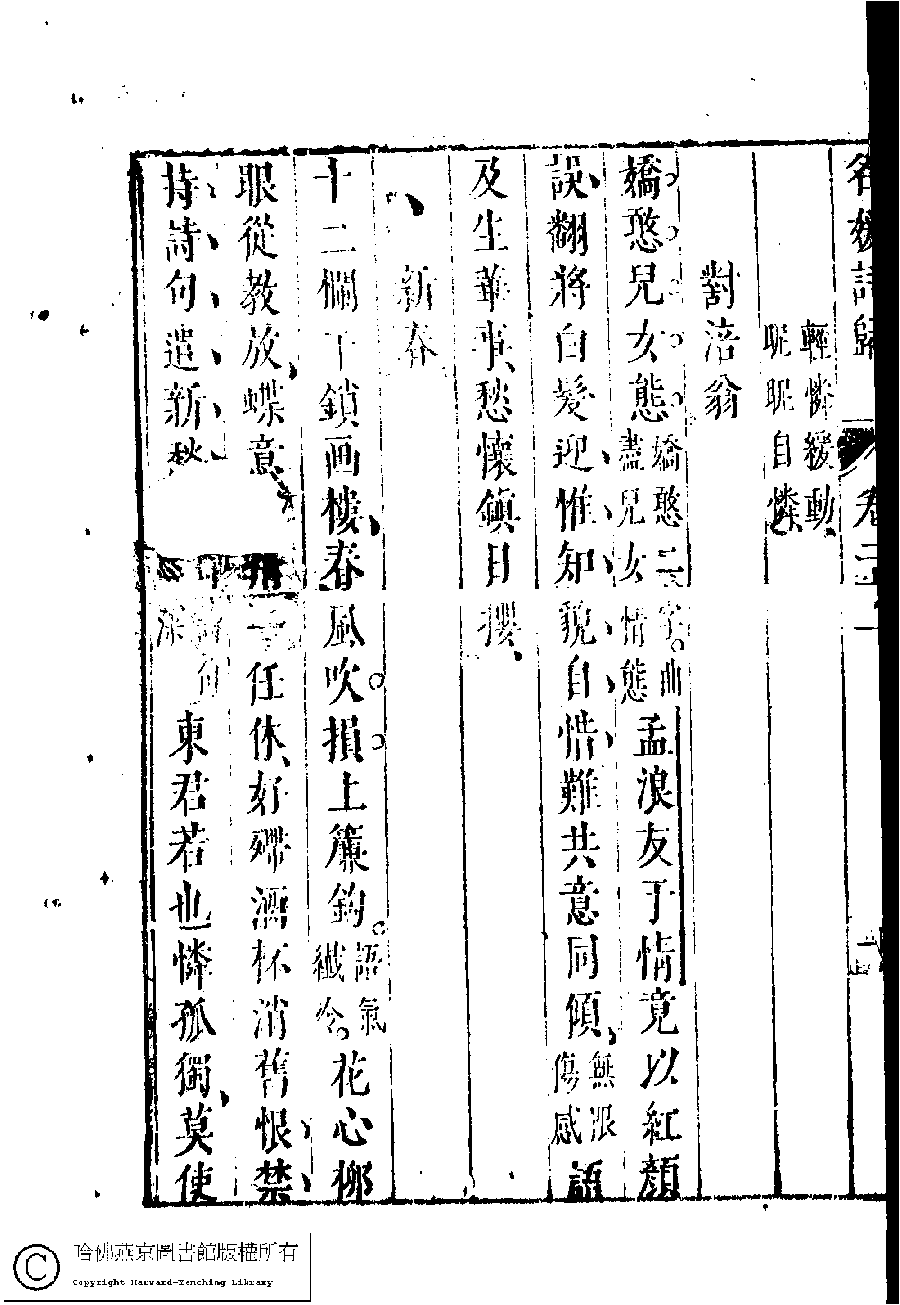 名媛詩歸 卷二十
輕憐緩動
昵昵自憐
對涪翁
嬌憨兒女態嬌憨二字曲盡兒女情態孟浪友于情竟以紅顏
誤翻將白髮迎惟知貌自惜難共意同傾無限傷感語
及生華事愁懷鎮日攖
新春
十二欄干鎖画樓春風吹損上簾鉤語氣纖冷花心柳
眼從教放蝶意 一任休好殢酒杯消舊恨禁
持詩句遣新秋 東君若也憐孤獨莫使
哈佛燕京圖書館版權所有
Copyright Harvard-Yenching Library